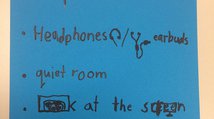 • Headphones / earbuds
• quiet room
• Look at the screen